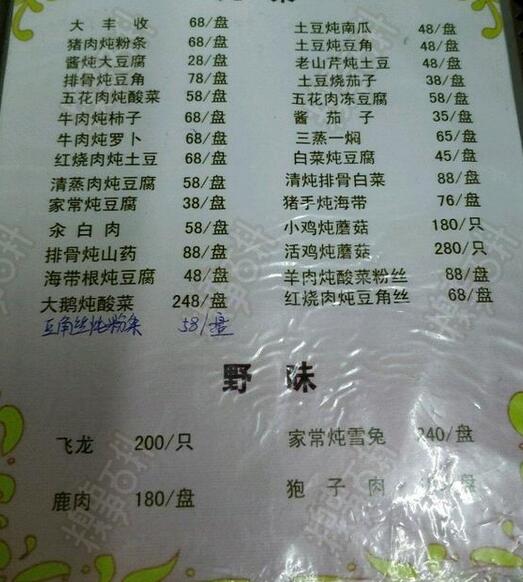 大丰收 68/盘
猪肉炖粉条 68/盘
酱炖大豆腐 28/盘
排骨炖豆角 78/盘
五花肉炖酸菜 58/盘
牛肉炖柿子 68/盘
牛肉炖罗卜 68/盘
红烧肉炖土豆 68/盘
清蒸肉炖豆腐 58/盘
家常炖豆腐 38/盘
汆白肉 58/盘
排骨炖山药 88/盘
海带根炖豆腐 48/盘
大鹅炖酸菜 248/盘
豆角丝炖粉条 58/盘
土豆炖南瓜 48/盘
土豆炖豆角 48/盘
老山芹炖土豆 48/盘
土豆烧茄子 38/盘
五花肉冻豆腐 58/盘
酱茄子 35/盘
三蒸一焖 65/盘
白菜炖豆腐 45/盘
清炖排骨白菜 88/盘
猪手炖海带 76/盘
小鸡炖蘑菇 180/只
活鸡炖蘑菇 280/只
羊肉炖酸菜粉丝 88/盘
红烧肉炖豆角丝 68/盘
野味
飞龙 200/只
家常炖雪兔 240/盘
鹿肉 180/盘
狍子肉 /盘